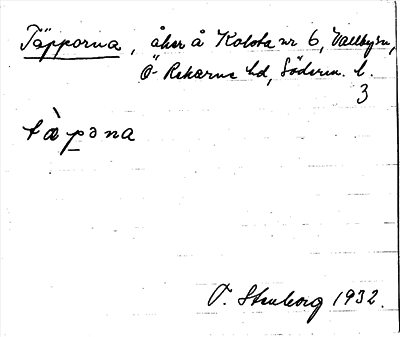 Täpporna, åker å Kolsta nr 6, Vallby sn,
Ö. Rekarne hd, Söderm. l.
3
tæ̀pəna
O. Stenborg 1932.